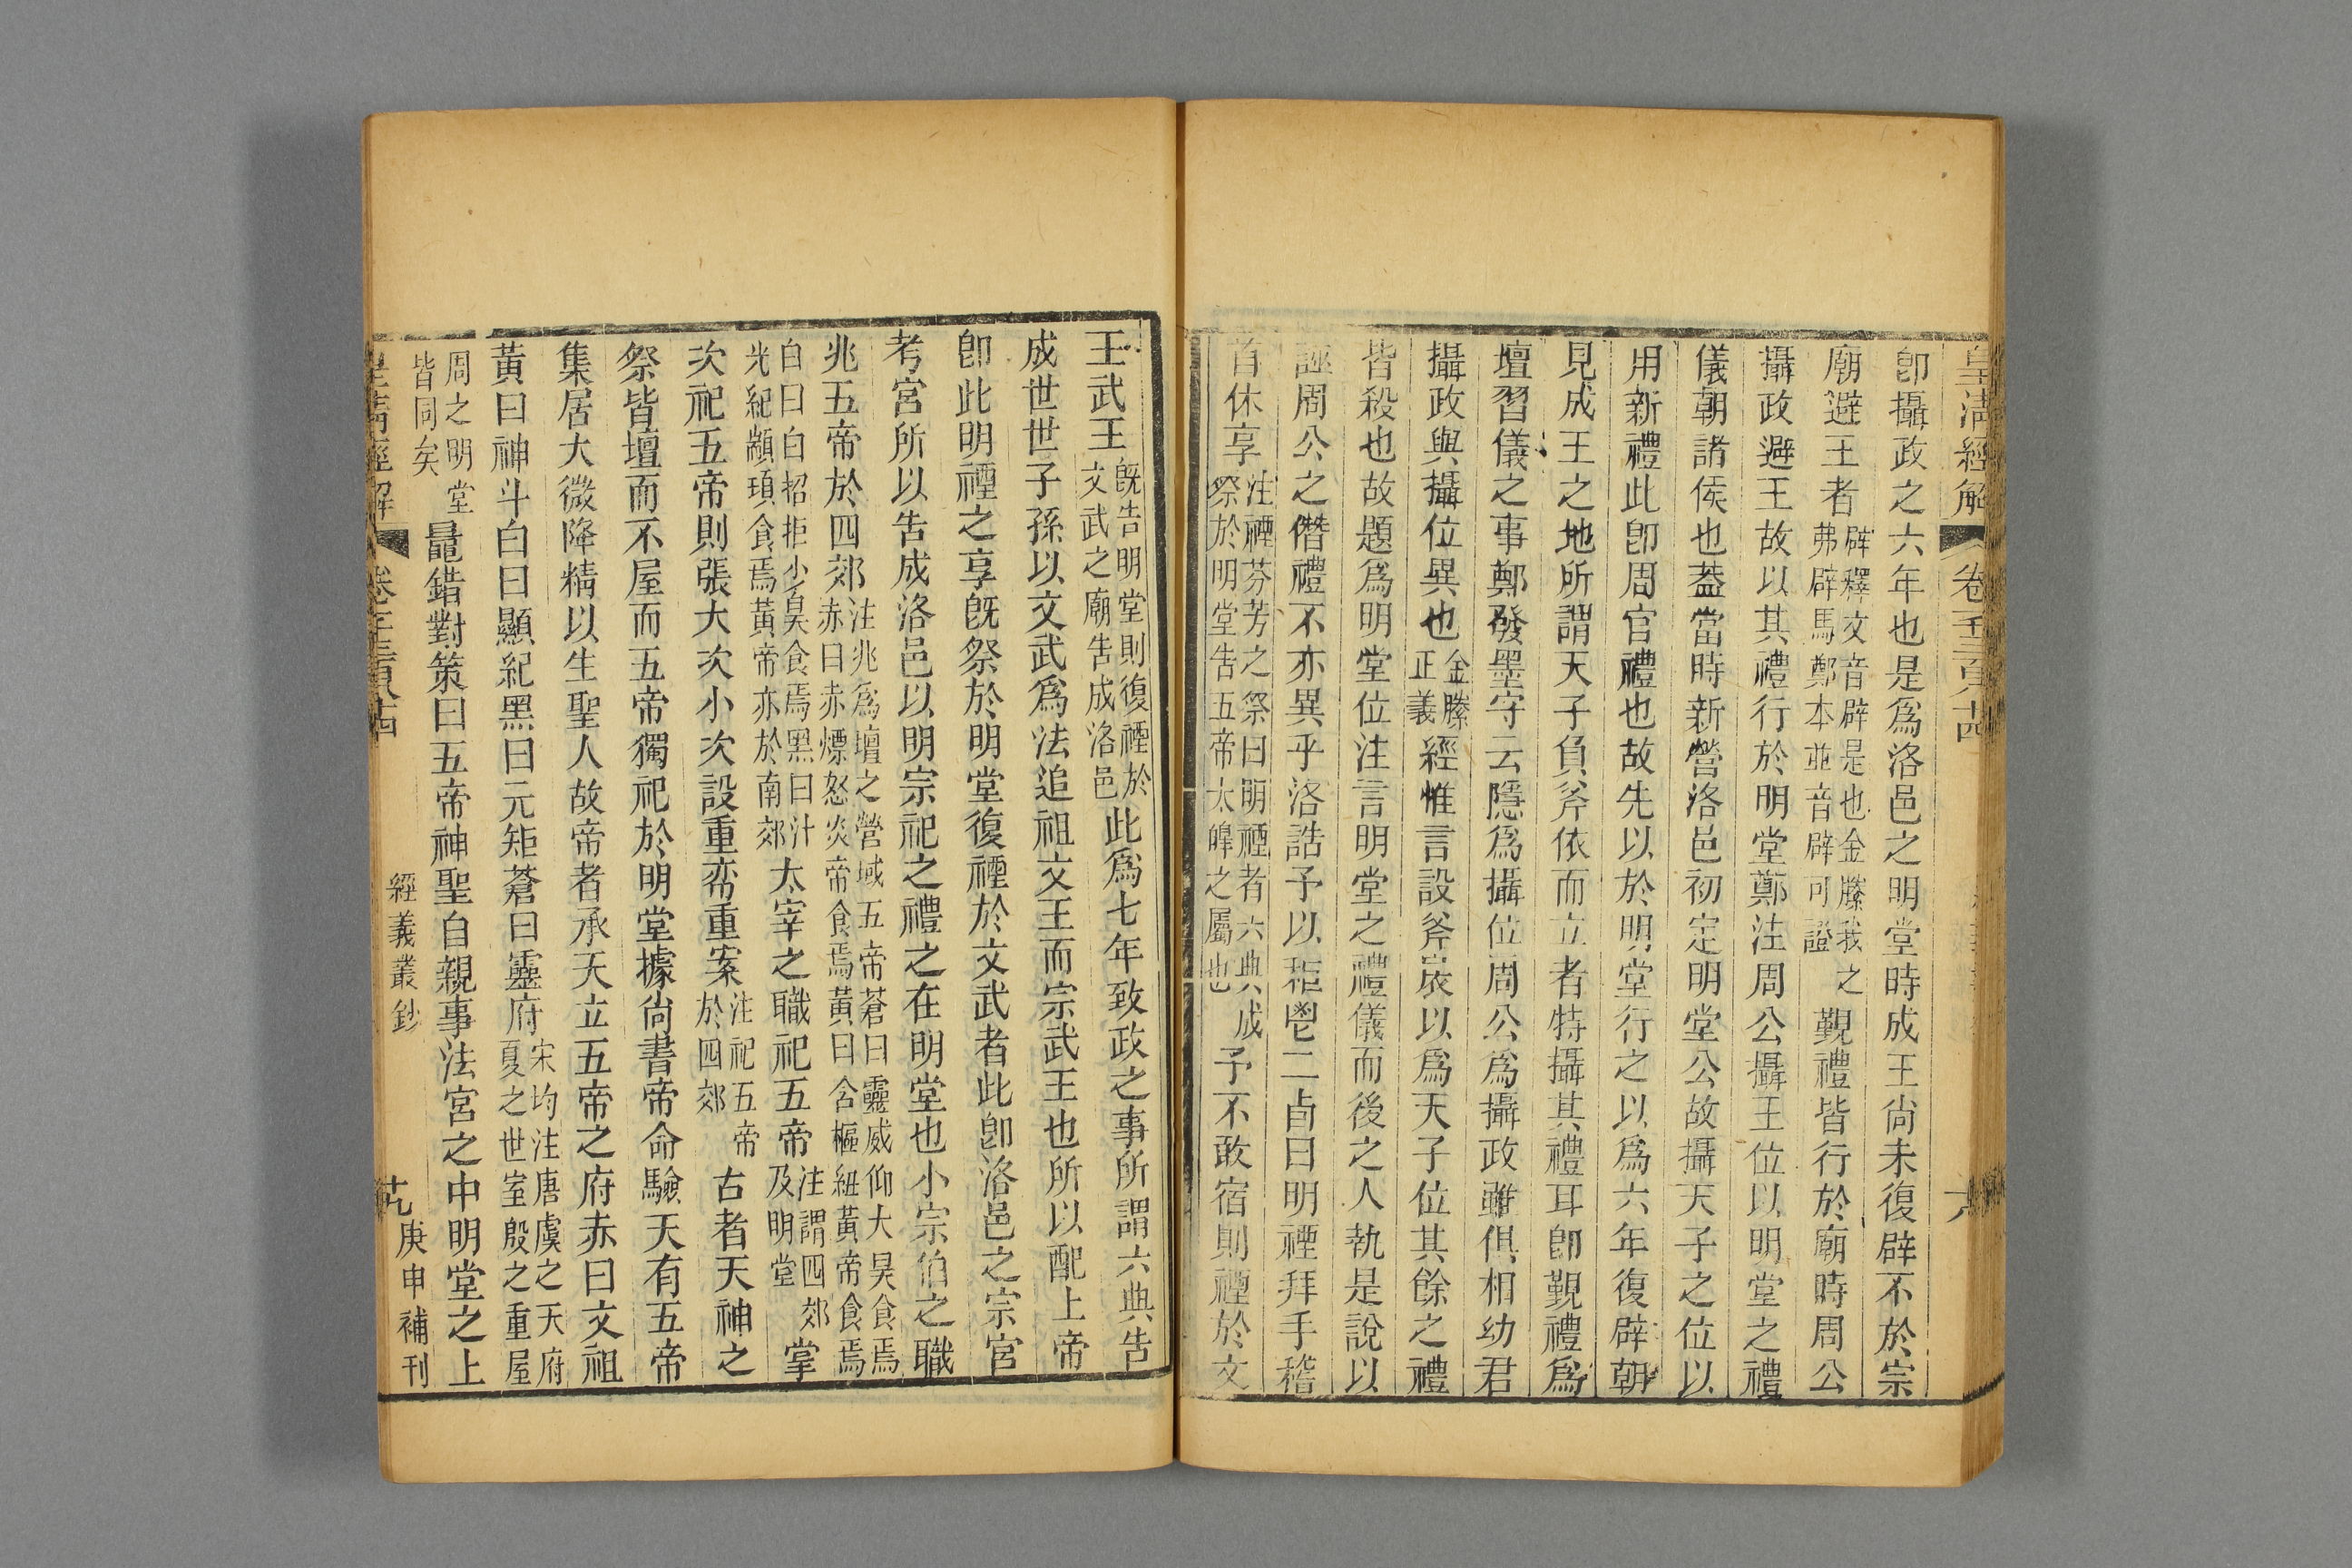 皇清經解 卷
卽攝政之六年也是爲洛邑之明堂時成王尙未復辟不於宗
廟避王者辟釋文音辟是也金縢我之弗辟馬鄭本並音辟可證覲禮皆行於廟時周公
攝政避王故以其禮行於明堂鄭注周公攝王位以明堂之禮
儀朝諸侯也蓋當時新營洛邑初定明堂公故攝天子之位以
用新禮此卽周官禮也故先以於明堂行之以爲六年復辟朝
見成王之地所謂天子負斧依而立者特攝其禮耳卽覲禮爲
壇習儀之事鄭發墨守云隱爲攝位周公爲攝政雖俱相幼君
攝政與攝位異也金縢正義經惟言設斧扆以爲天子位其餘之禮
皆殺也故題爲明堂位注言明堂之禮儀而後之人執是說以
誣周公之僭禮不亦異乎洛誥予以秬鬯二卣曰明禋拜手稽
首休享注禋芬芳之祭曰明禋者六典成祭於明堂告五帝太皥之屬也予不敢宿則禋於文
王武王旣告明堂則復禋於文武之廟告成洛邑此爲七年致政之事所謂六典告
成世世子孫以文武爲法追祖文王而宗武王也所以配上帝
卽此明禋之享旣祭於明堂復禋於文武者此卽洛邑之宗宮
考宮所以告成洛邑以明宗祀之禮之在明堂也小宗伯之職
兆五帝於四郊注兆爲壇之營域五帝蒼曰靈威仰大昊食焉赤曰赤熛怒炎帝食焉黃曰含樞紐黃帝食焉白曰白招拒少昊食焉黑曰汁光紀顓頊食焉黃帝亦於南郊太宰之職祀五帝注謂四郊及明堂掌
次祀五帝則張大次小次設重帟重案注祀五帝於四郊古者天神之
祭皆壇而不屋而五帝獨祀於明堂據尙書帝命驗天有五帝
集居大微降精以生聖人故帝者承天立五帝之府赤曰文祖
黃曰神斗白曰顯紀黑曰元矩蒼曰靈府宋均注唐虞之天府夏之世室殷之重屋
周之明堂皆同矣鼂錯對策曰五帝神聖自親事法宮之中明堂之上
皇清經解 經義叢鈔 庚申補刊